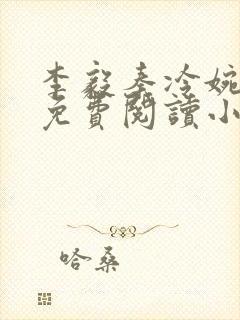 李毅秦冷婉
免費閱讀小
哈桑